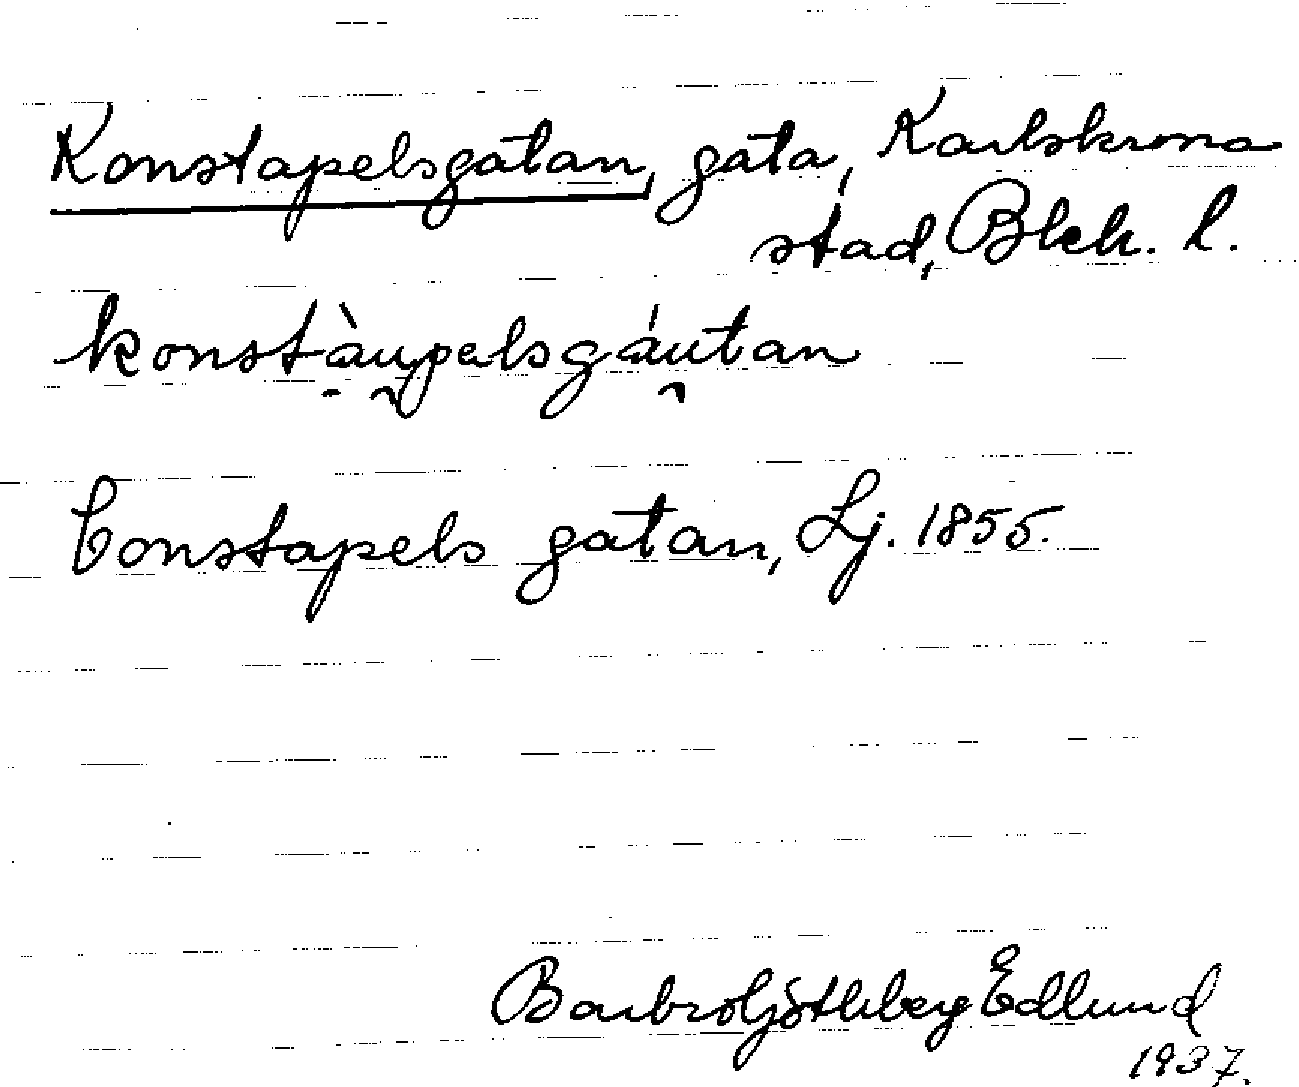 Konstapelsgatan, gata, Karlskrona
stad, Blek. l.
konstàu̯pelsgáu̯tan
Constapels gatan, Lj. 1855.
Barbro Göthberg Edlund
1937.